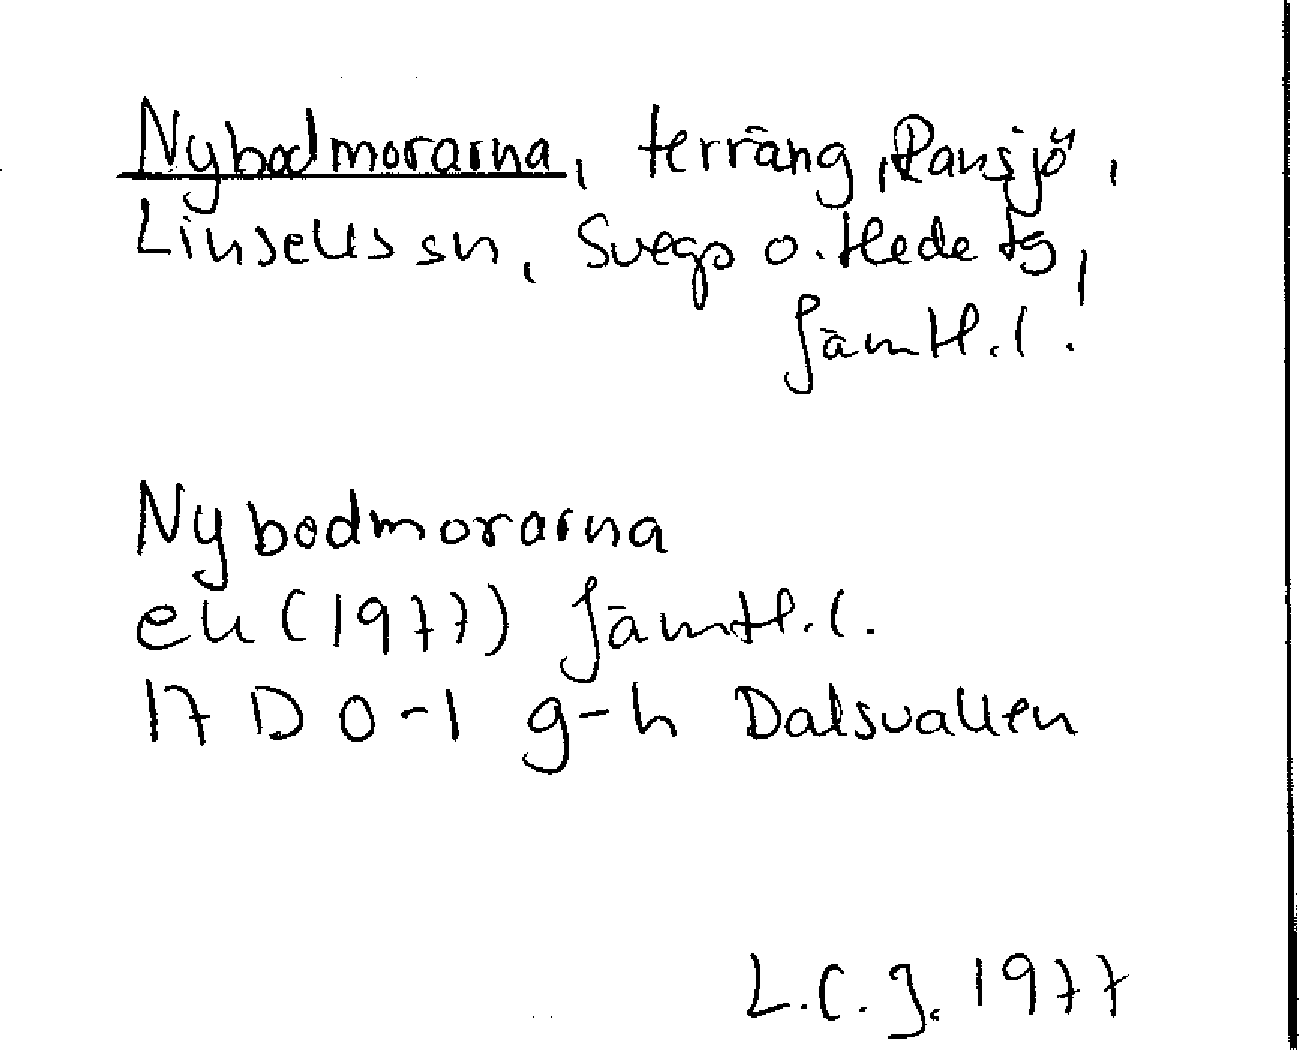 Nybodmorarna, terräng, Ransjö,
Linsells sn, Svegs o. Hede tg,
Jämtl. l.
Nybodmorarna
ek (1977) Jämtl. l.
17 D 0-1 g-h Dalsvallen
L.C.J. 1977